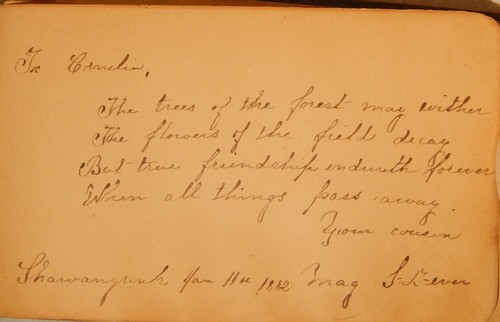 To Cornelia,
The trees of the forest may wither
The flowers of the field decay
But true friendship endureth forever
When all things pass away.
Your cousin
Shawangunk Jan 11th 1882 Mag